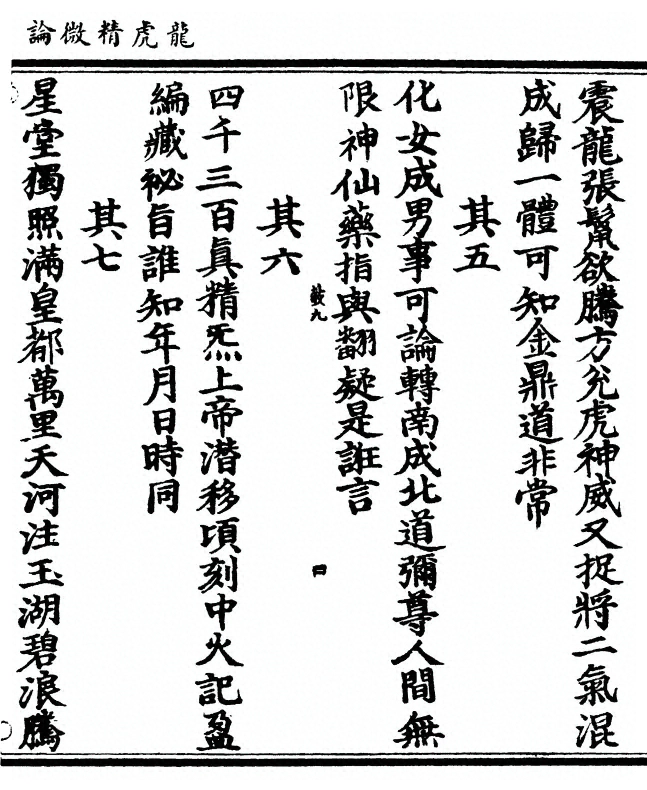 龍虎精微論
震龍張鬣欲騰方兊虎神威又捉將二氣混
成歸一體可知金鼎道非常
其五
化女成男事可論轉南成北道彌尊人間無
限神仙藥指與翻疑是誑言
其六
薮九
四千三百真精炁上帝潛移頃刻中火記盈
編藏祕旨誰知年月日時同
其七
星堂獨照滿皇都萬里天河注玉湖碧浪騰